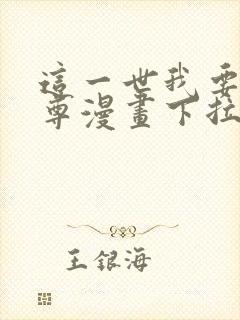 這一世我要
尊漫畫下拉
王銀海